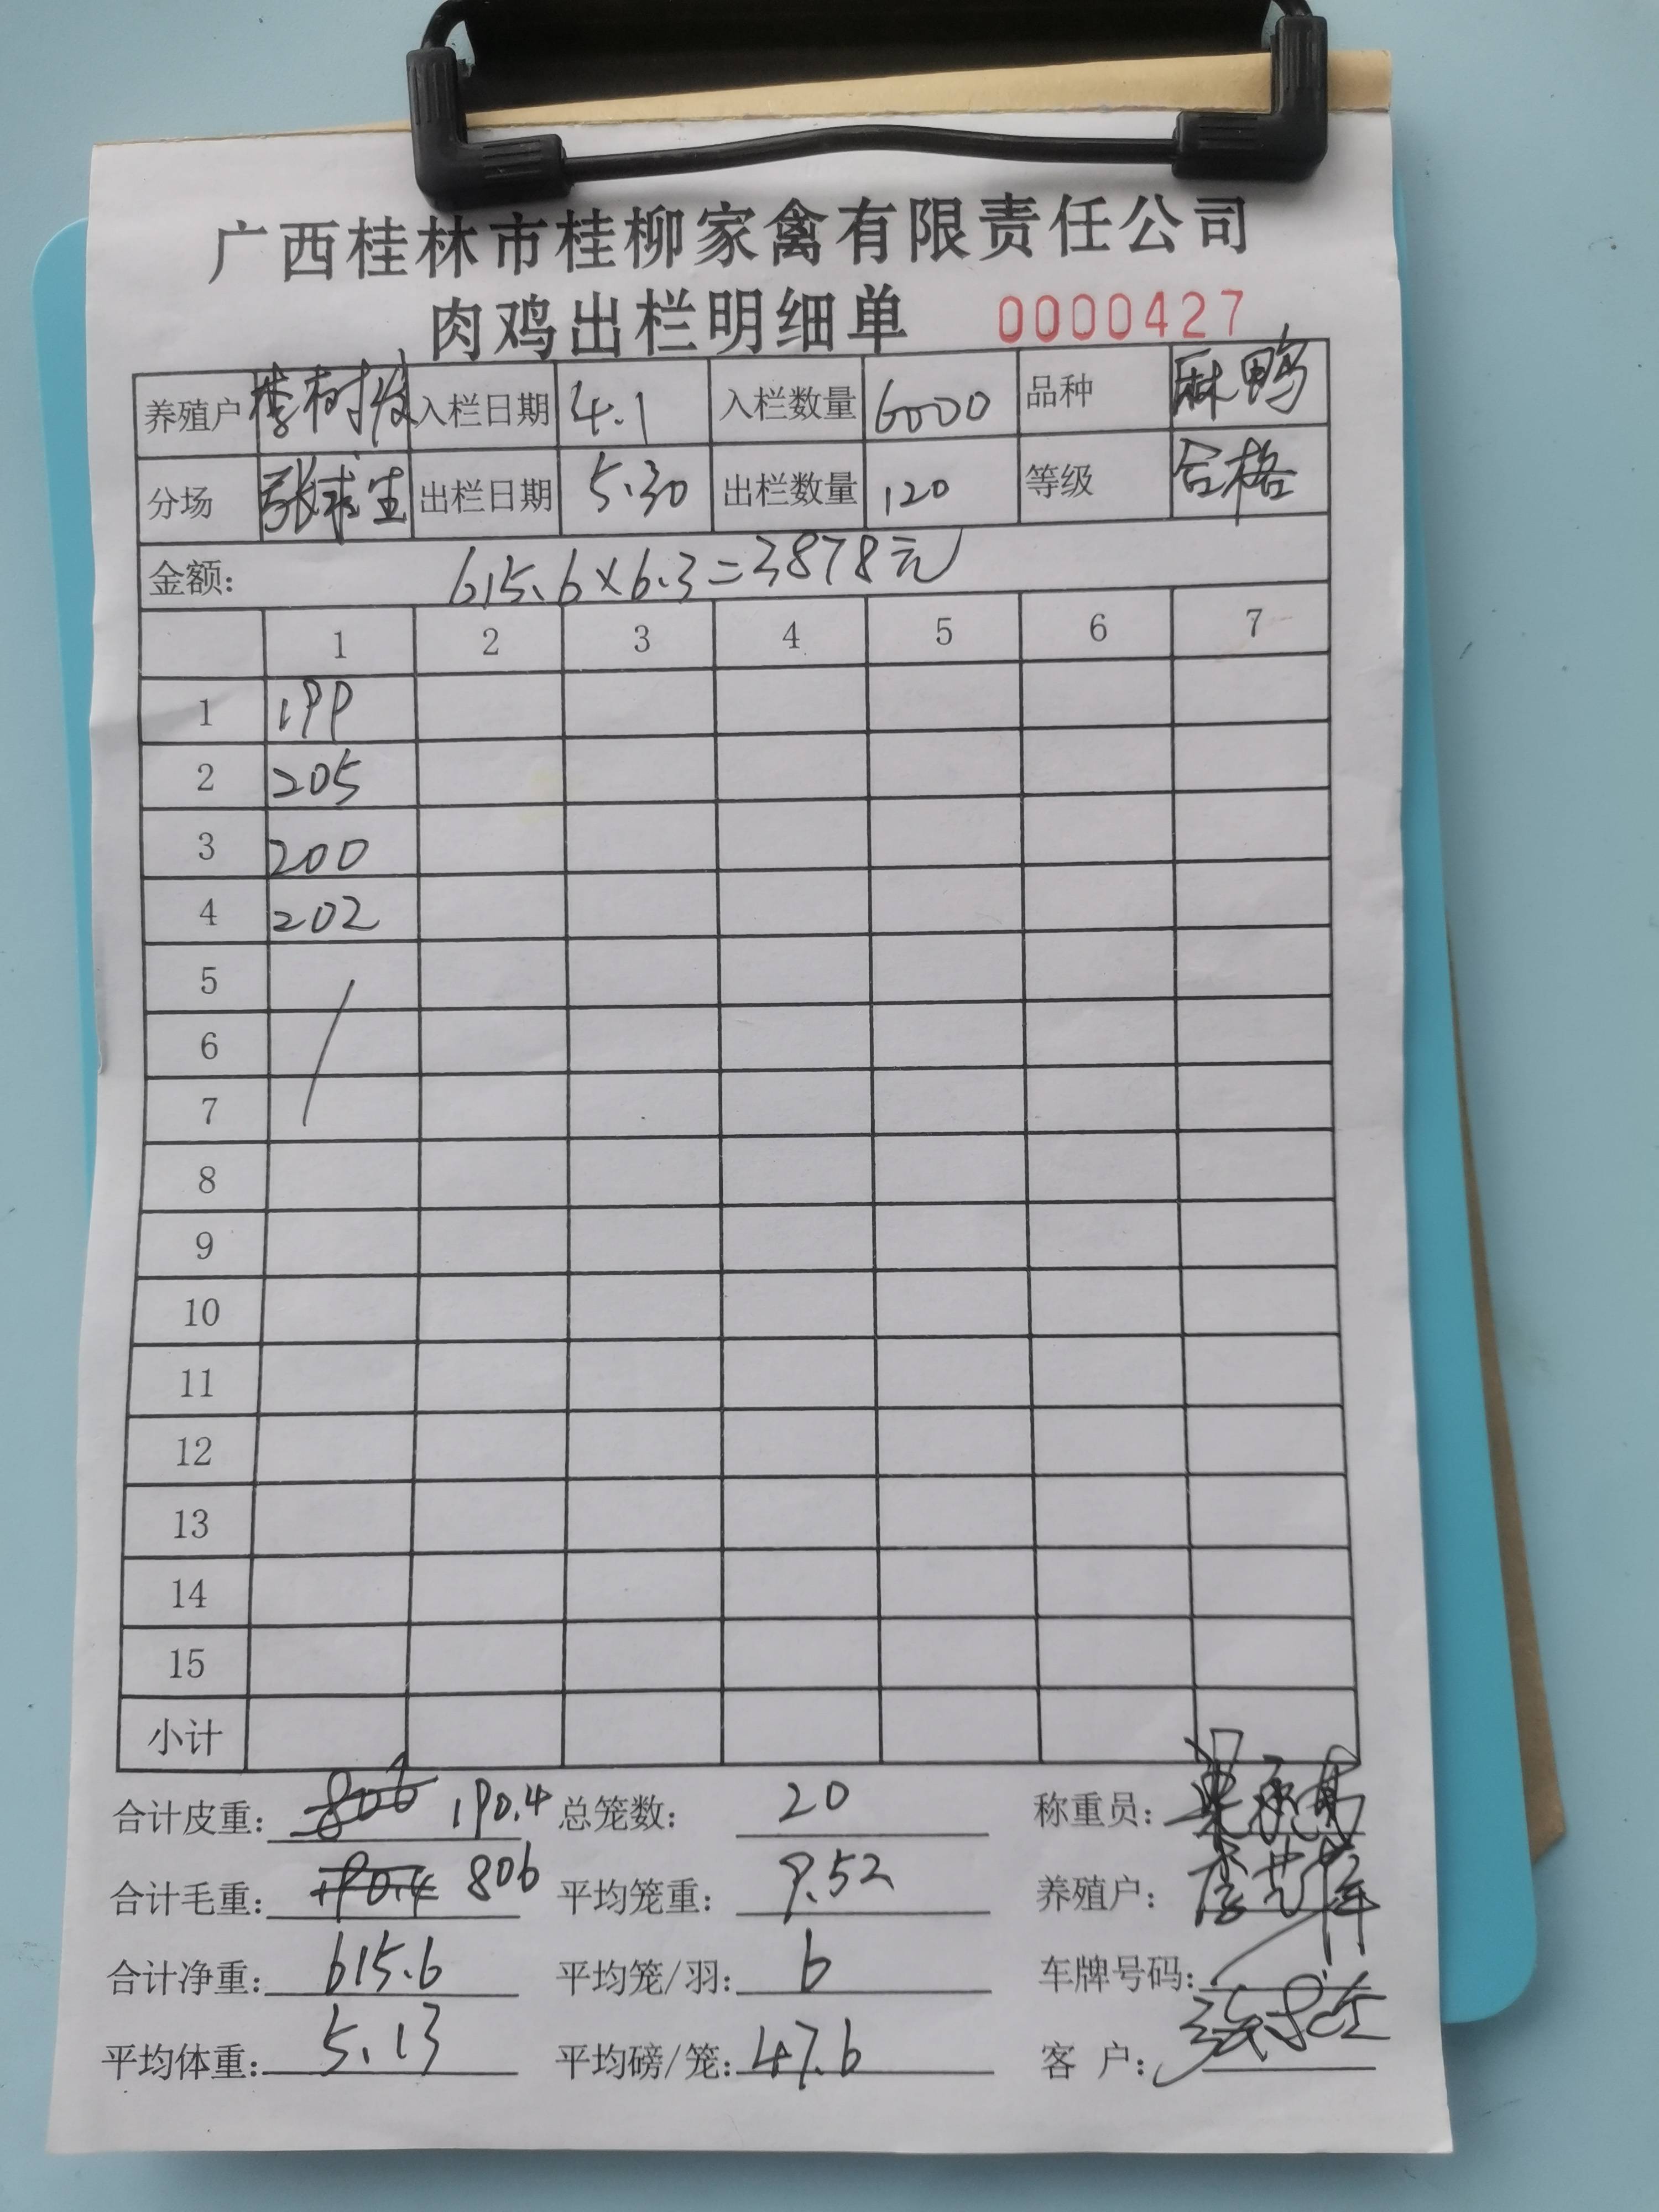 广西桂林市桂柳家禽有限责任公司
肉鸡出栏明细单 0000427
养殖户 李树发 入栏日期 4.1 入栏数量 6000 品种 麻鸭
分场 张球生 出栏日期 5.30 出栏数量 120 等级 合格
金额: 615.6×6.3=3878元
1 2 3 4 5 6 7
1 199
2 205
3 200
4 202
5
6
7
8
9
10
11
12
13
14
15
小计
合计皮重: 806 190.4 总笼数: 20 称重员:
合计毛重: 190.4 806 平均笼重: 9.52 养殖户:
合计净重: 615.6 平均笼/羽: 6 车牌号码:
平均体重: 5.13 平均磅/笼: 47.6 客 户: